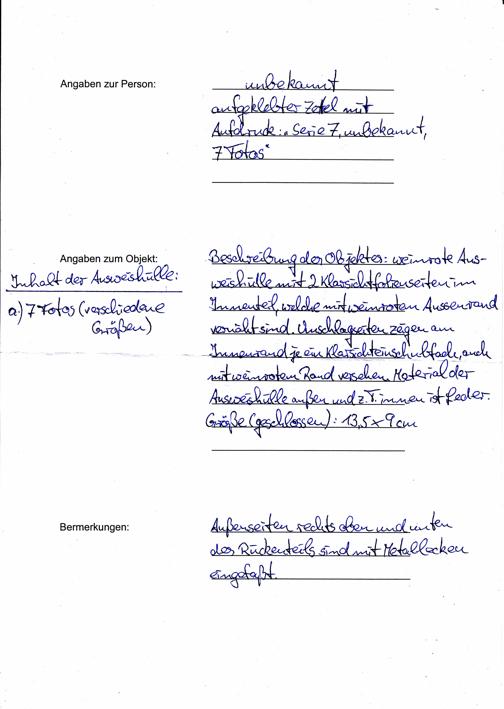 Angaben zur Person:
unbekannt
aufgeklebter Zettel mit
Aufdruck: „Serie 7, unbekannt,
7 Fotos"
Angaben zum Objekt:
Inhalt der Ausweishülle:
a.) 7 Fotos (verschiedene
Größen)
Beschreibung des Objektes: weinrote Aus-
weishülle mit 2 Klarsichtfolienseiten im
Innenteil, welche mit weinroten Aussenrand
vernäht sind. Umschlagseiten zeigen am
Innenrand je ein Klarsichteinschubfach, auch
mit weinrotem Rand versehen. Material der
Ausweishülle außen und z.T. innen ist Leder.
Größe (geschlossen): 13,5 x 9 cm
Bermerkungen:
Außenseiten rechts oben und unten
des Rückenteils sind mit Metallecken
eingefaßt.